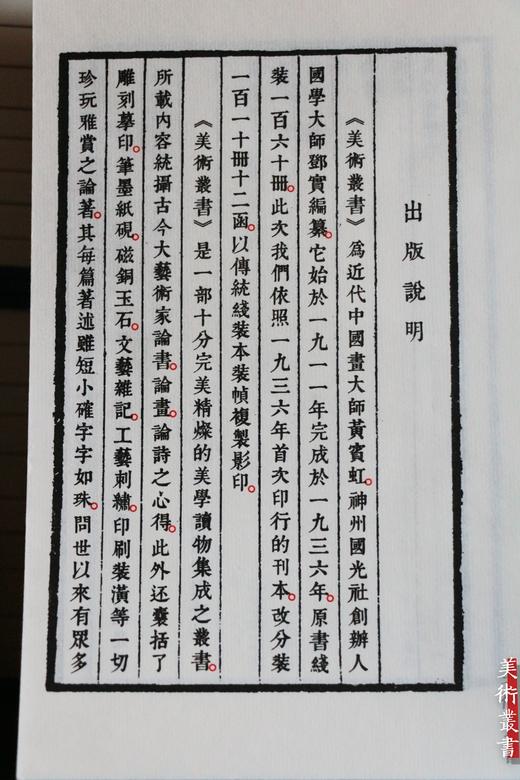 出版說明
《美術叢書》爲近代中國畫大師黃賓虹。神州國光社創辦人
國學大師鄧實編纂。它始於一九一一年完成於一九三六年。原書綫
裝一百六十冊。此次我們依照一九三六年首次印行的刊本。改分裝
一百一十冊十二函。以傳統綫裝本裝幀複製影印。
《美術叢書》是一部十分完美精燦的美學讀物集成之叢書。
所載内容統攝古今大藝術家論書。論畫。論詩之心得。此外还囊括了
雕刻摹印。筆墨紙硯。磁銅玉石。文藝雜記。工藝刺繡。印刷裝潢等一切
珍玩雅賞之論著。其每篇著述雖短小確字字如珠。問世以來有眾多
美術叢書